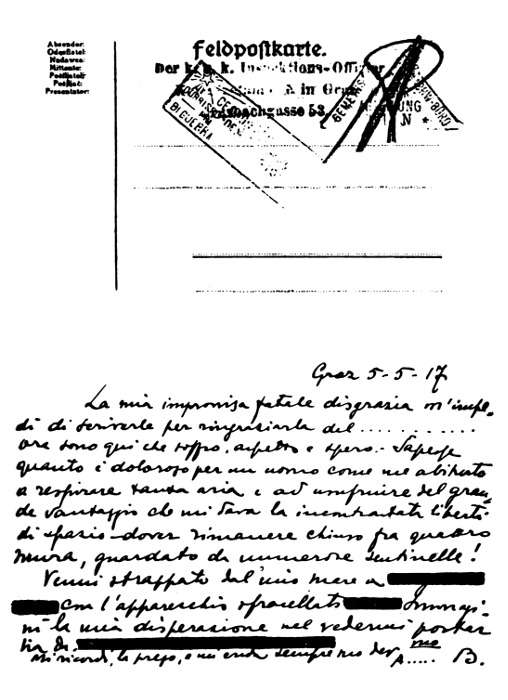 Absender:
Odesílatel:
Nadawca:
Mittente:
Pošiljatelj:
Presentator:
Feldpostkarte.
Der k. u. k. Inspektions-Offizier
in Graz
gasse 53
DI GUERRA
Graz 5-5-17
La mia improvvisa fatale disgrazia m'impe-
dì di scriverle per ringraziarla del ..........
Ora sono qui che soffro, aspetto e spero. - Sapesse
quanto è doloroso per un uomo come me abituato
a respirare tanta aria e ad usufruire del gran-
de vantaggio che mi dava la incontrastata libertà
di spazio - dover rimanere chiuso fra quattro
mura, guardato da numerose sentinelle!
Venni strappato dal mio mare a
con l'apparecchio sfracellato immagi-
ni la mia disperazione nel vedermi portar
via di
Mi ricordi, la prego, e mi creda sempre suo dev mo
A..... B.